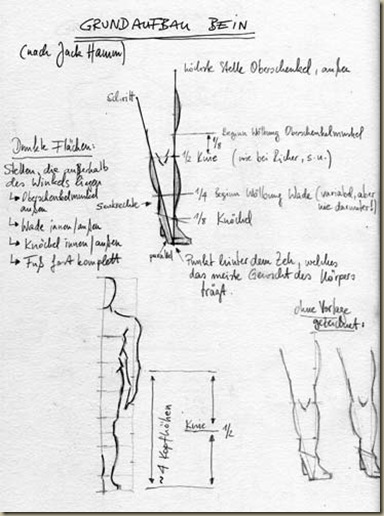 GRUNDAUFBAU BEIN
(nach Jack Hamm)
höchste Stelle Oberschenkel, außen
Schritt
Beginn Wölbung Oberschenkelmuskel
1/8
1/2 Knie (wie bei Richer, s.u.)
Dunkle Flächen:
Stellen, die außerhalb
des Winkels liegen
↳ Oberschenkelmuskel
außen
↳ Wade innen/außen
↳ Knöchel innen/außen
↳ Fuß fast komplett
Senkrechte
1/4 Beginn Wölbung Wade (variabel, aber
nie darunter!)
1/8 Knöchel
parallel
Punkt hinter dem Zeh, welches
das meiste Gewicht des Körpers
trägt.
ohne Vorlage
gezeichnet.
~4 Kopfhöhen
Knie 1/2